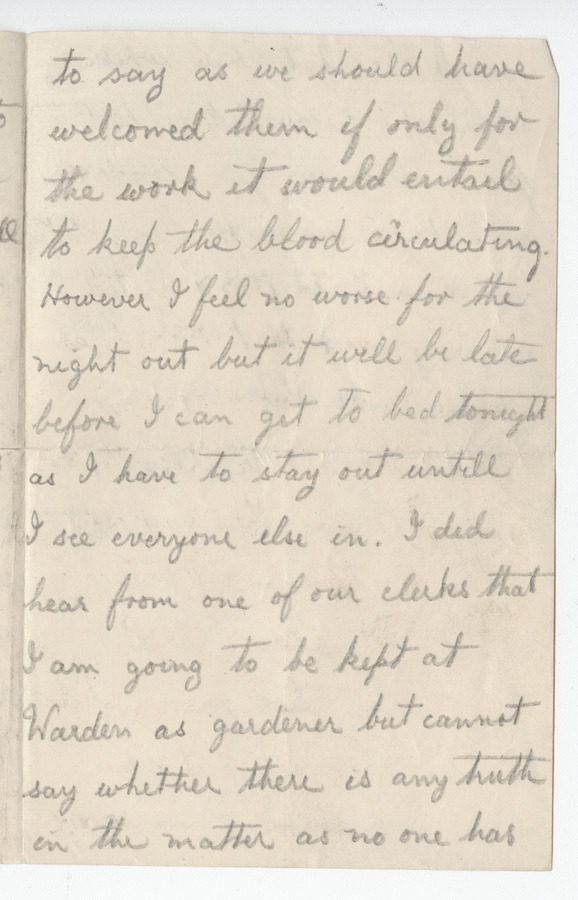 to say as we should have
welcomed them if only for
the work it would entail
to keep the blood circulating.
However I feel no worse for the
night out but it will be late
before I can get to bed tonight
as I have to stay out untill
I see everyone else in. I did
hear from one of our clerks that
I am going to be kept at
Warden as gardener but cannot
say whether there is any truth
in the matter as no one has